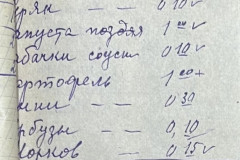 рян — — 0 10 v
пуста поздяя 1 00 v
бачки соуск 0 10 v
ртофель 1 00 +
— — 0 30
рбузы — 0,10
орков 0,15 v